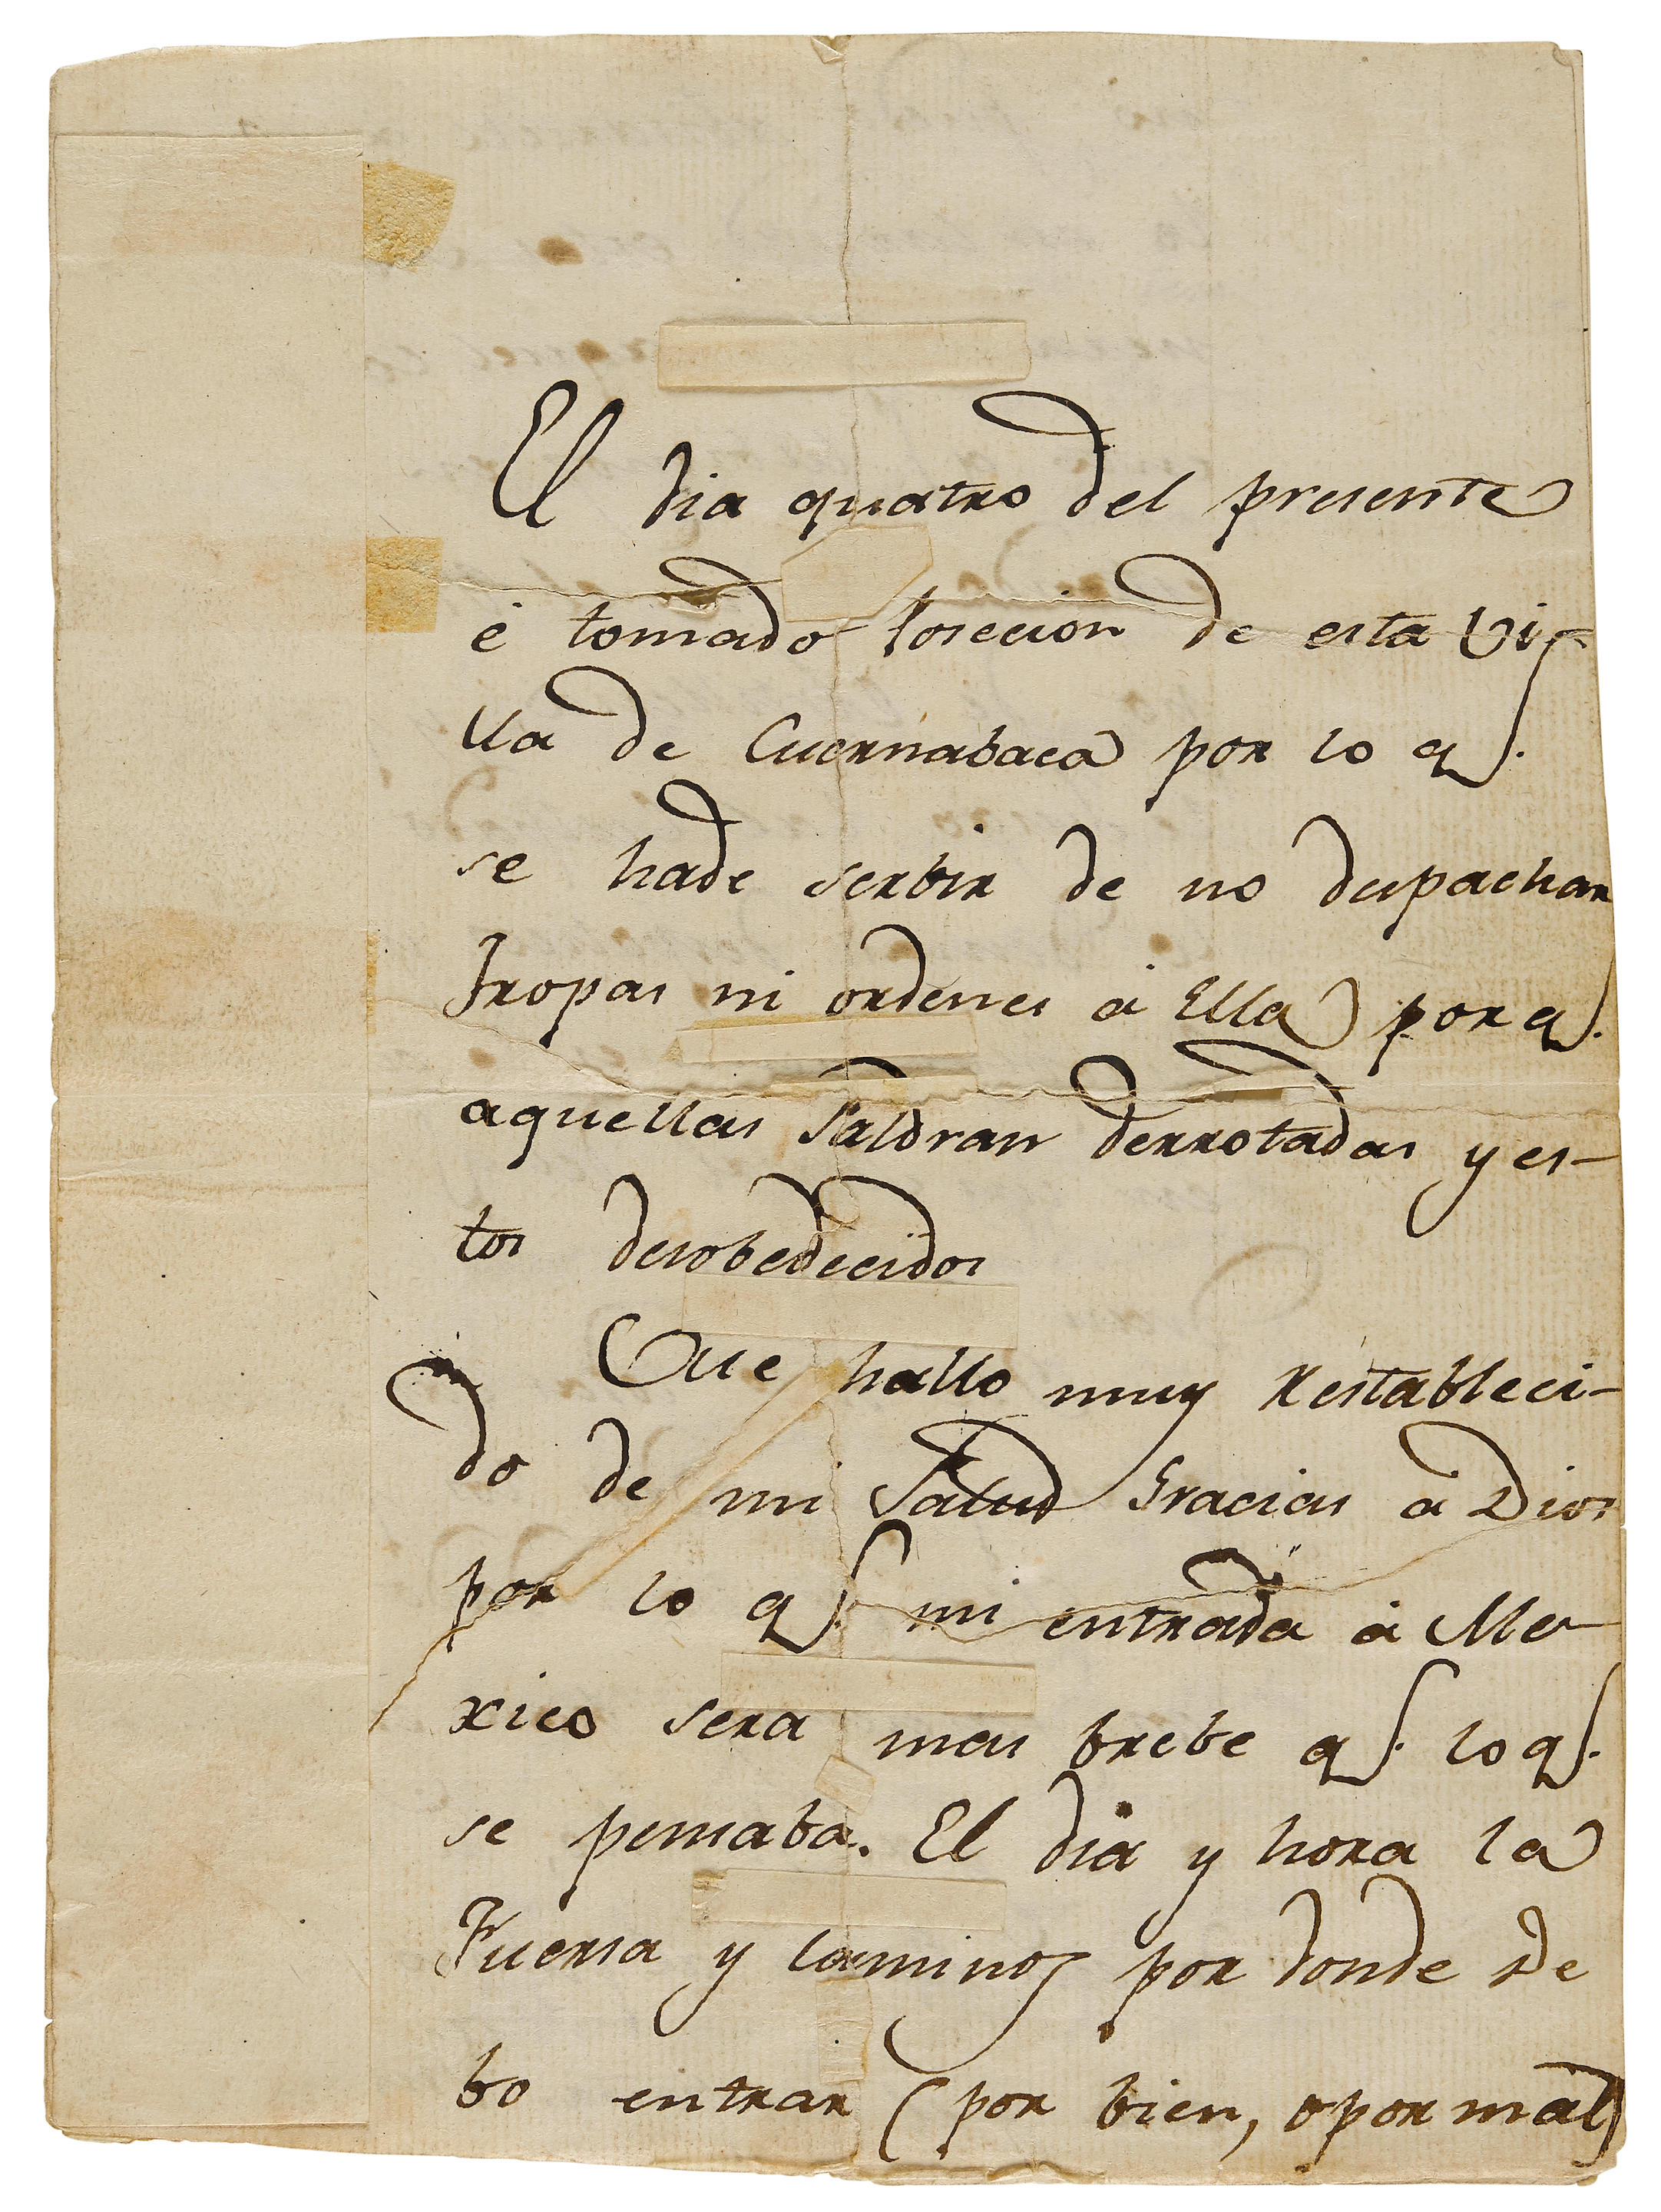 El dia quatro del presente
é tomado Posecion de esta Vi-
lla de Cuernabaca por lo q.
se hade serbir de no despachar
Tropas ni ordenes á Ella porq.
aquellas Saldran derrotadas y es-
tos desobedecidos
Que hallo muy Restableci-
do de mi Salud Gracias a Dios
por lo q. mi entrada á Me-
xico sera mas brebe q. lo q.
se pensaba. El dia y hora la
Fuersa y caminos por donde De
bo entrar (por bien, o por mal)